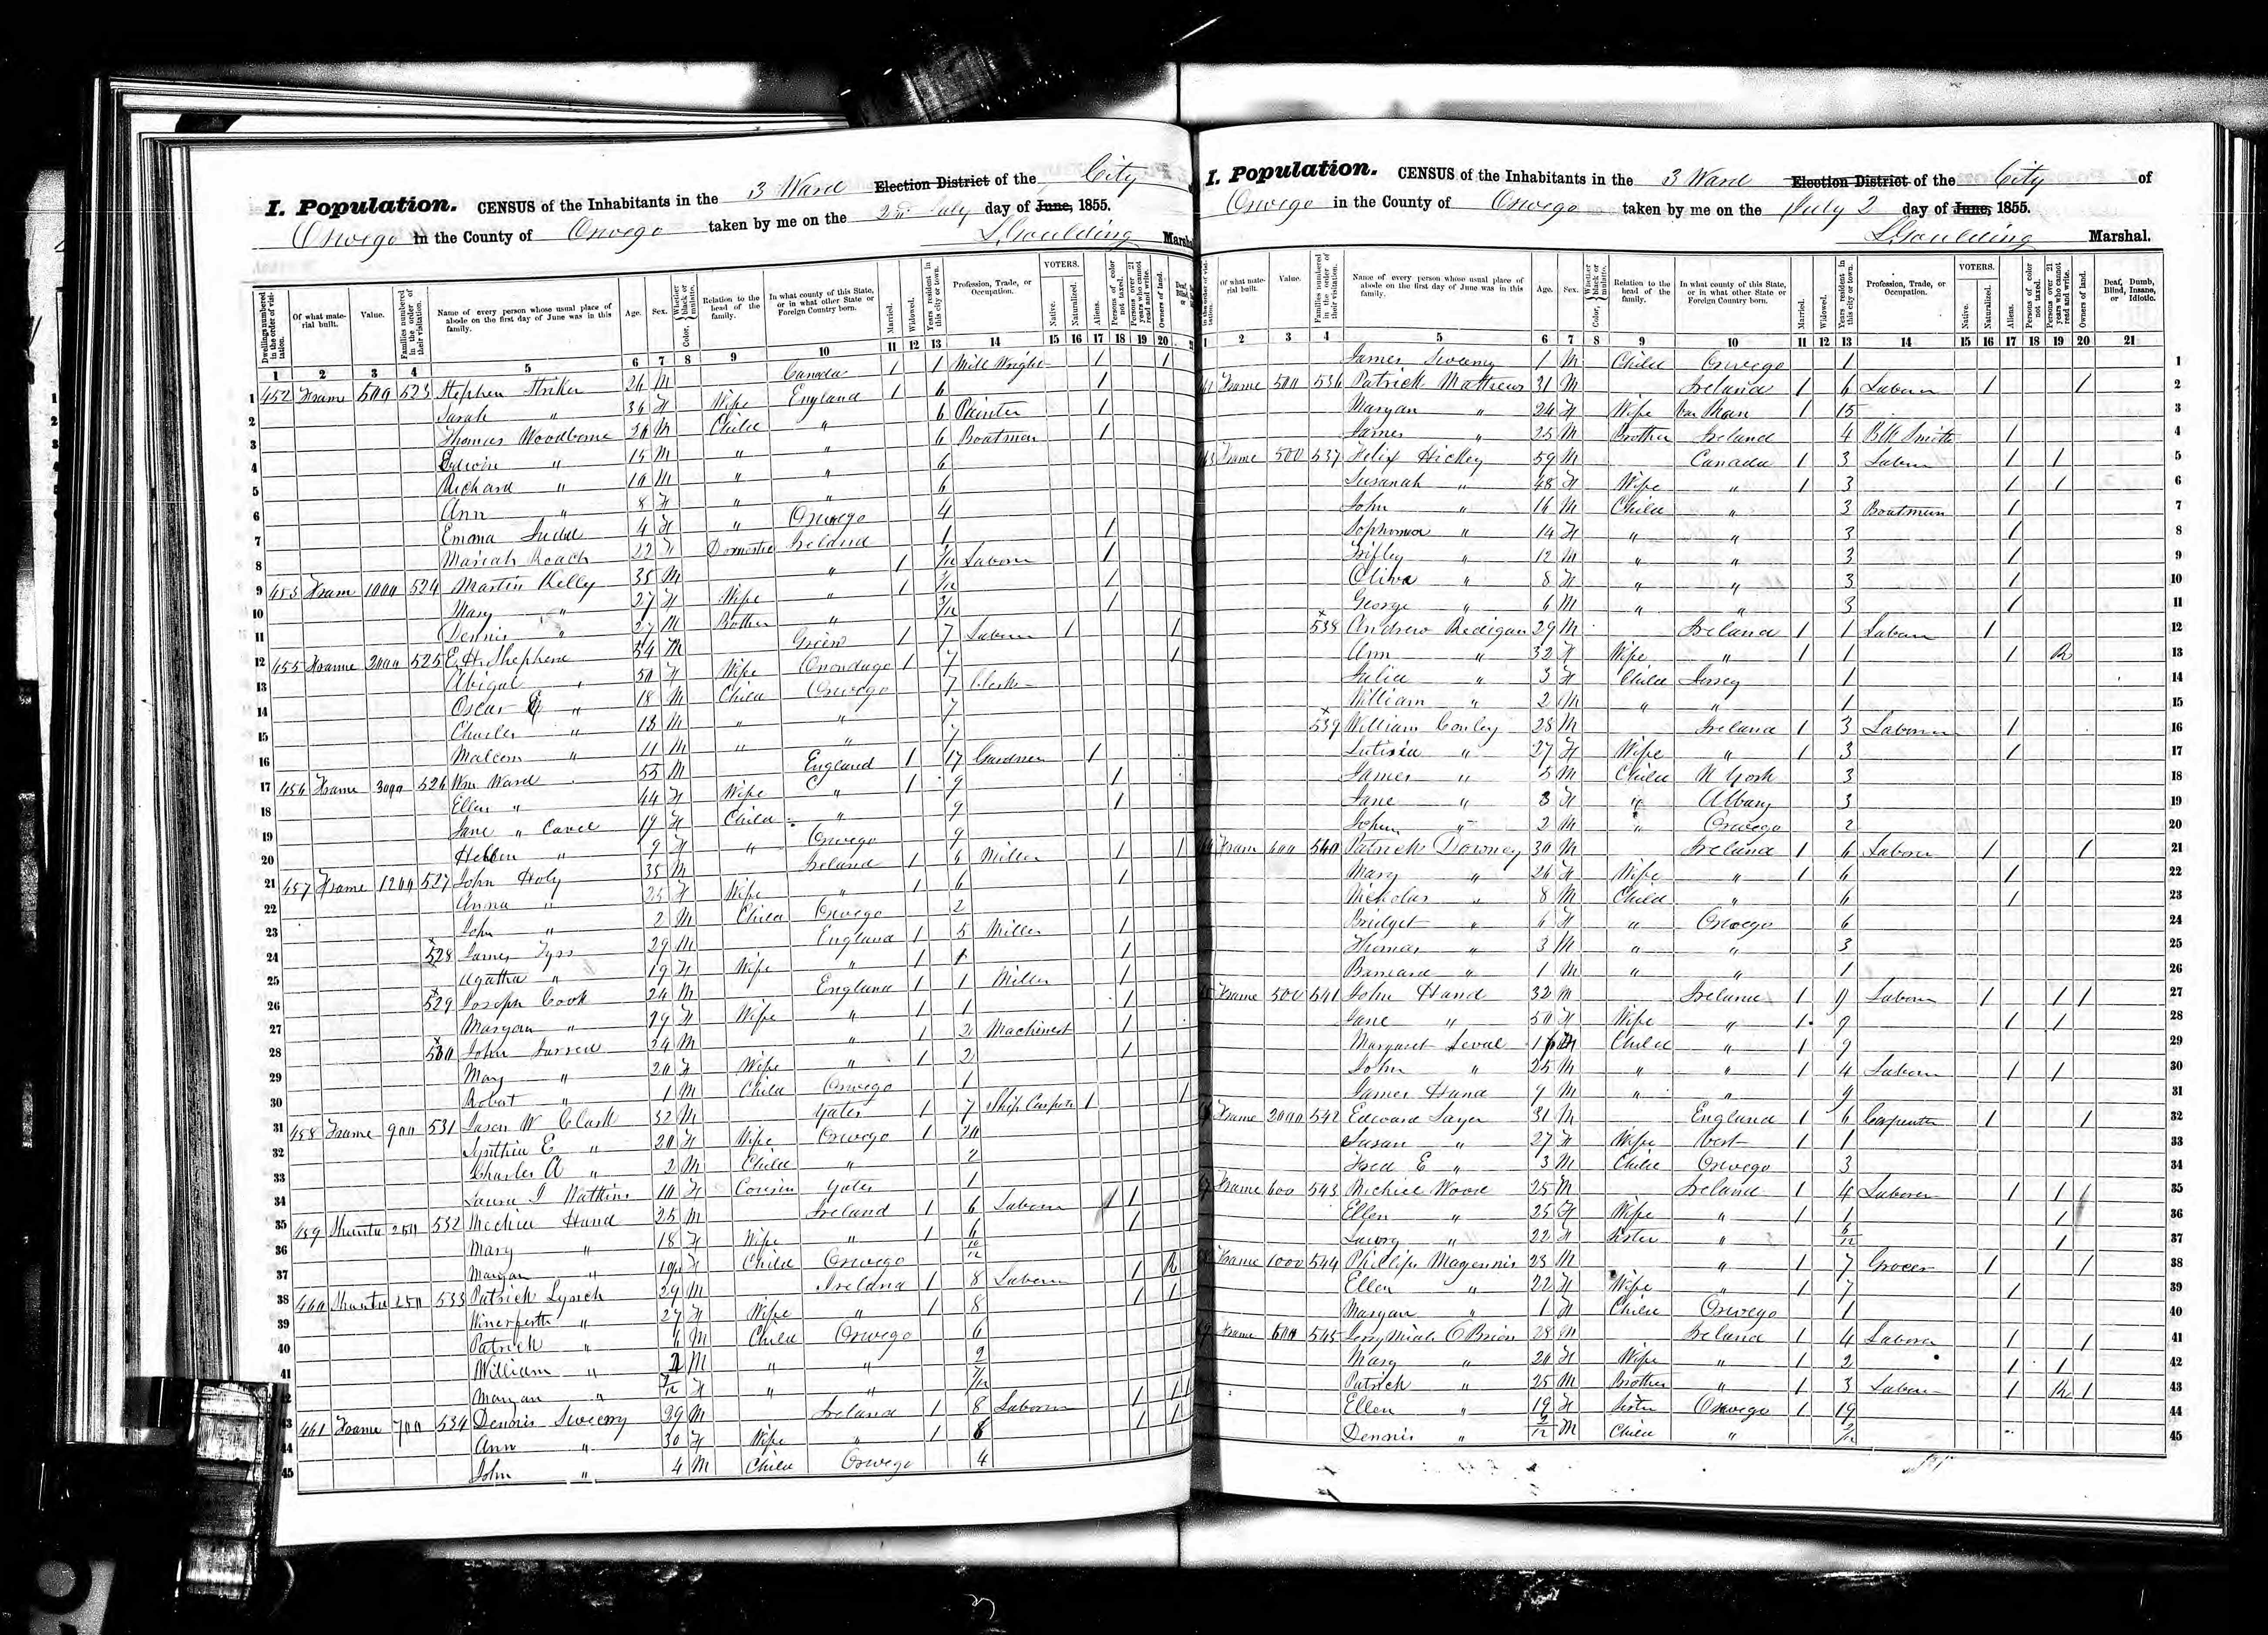 I. Population. CENSUS of the Inhabitants in the 3 Ward Election District of the City
Oswego in the County of Oswego taken by me on the 2nd July day of June, 1855.
L Goulding Marshal
Dwellings numbered in the order of visitation. Of what material built. Value. Families numbered in the order of their visitation. Name of every person whose usual place of abode on the first day of June was in this family. Age. Sex. Color, Whether black or mulatto. Relation to the head of the family. In what county of this State, or in what other State or Foreign Country born. Married. Widowed. Years resident in this city or town. Profession, Trade, or Occupation. VOTERS. Native. Naturalized. Aliens. Persons of color not taxed. Persons over 21 years who cannot read and write. Owners of land.
1 2 3 4 5 6 7 8 9 10 11 12 13 14 15 16 17 18 19 20
1 452 Frame 500 523 Stephen Striker 26 M Canada 1 1 Mill Wright 1 1
2 Sarah " 36 F Wife England 1 6 1
3 Thomas Woodborne 20 M Child " 6 Painter 1
4 " 15 M " " 6 Boatman 1
5 Richard " 10 M " " 6
6 Ann " 8 F " " 6
7 Emma Judd 4 F " Oswego 4
8 Mariah Roach 22 F Domestic Ireland 1 1
9 453 Frame 1000 524 Martin Kelly 35 M " 1 Labor 1
10 Mary " 27 F Wife " 1 1
11 Dennis " 27 M Brother " 1
12 455 Frame 2000 525 E. H. Shepherd 54 M Green 1 7 Labor 1 1
13 Abigal " 50 F Wife Onondago 1 7 1
14 Oscar " 18 M Child Oswego 7 Clerk
15 Charles " 13 M " " 7
16 Malcom " 11 M " " 7
17 456 Frame 3000 526 Wm Ward 55 M England 1 17 Gardner 1
18 Ellen " 44 F Wife " 1 9 1
19 Jane " 19 F Child " 9 1
20 " 9 F " Oswego 9
21 457 Frame 1200 527 John Holy 35 M Ireland 1 6 Miller 1 1
22 Anna " 25 F Wife " 1 6 1
23 John " 2 M Child Oswego 2
24 528 James 29 M England 1 5 Miller 1
25 Agatha " 19 F Wife " 1 1 1
26 529 Joseph Cook 24 M England 1 1 Miller 1
27 Margan " 29 F Wife " 1 1 1
28 530 John 24 M " 1 2 Machinest 1
29 Mary " 20 F Wife " 1 2 1
30 Robert " 1 M Child Oswego 1
31 458 Frame 900 531 Jason W Clark 32 M Yates 1 7 Ship Carpt 1 1
32 Synthia E " 20 F Wife Oswego 1 20
33 Charles A " 2 M Child " 2
34 Laura J Watkins 10 F Cousin Yates 1
35 459 Shantee 250 532 Michiel Hand 25 M Ireland 1 6 Labor 1 1
36 Mary " 18 F Wife " 1 6 1
37 Margan " F Child Oswego 10/12
38 460 Shantee 250 533 Patrick Lynch 29 M Ireland 1 8 Labor 1 R
39 " 27 F Wife " 1 8 1 1
40 Patrick " 6 M Child Oswego 6
41 William " 2 M " " 2
42 Margan " 7/12 F " " 7/12
43 461 Frame 700 534 Dennis Sweeny 29 M Ireland 1 8 Labor 1 1 1
44 Ann " 30 F Wife " 1 8 1 1
45 John " 4 M Child Oswego 4
I. Population. CENSUS of the Inhabitants in the 3 Ward Election District of the City of
Oswego in the County of Oswego taken by me on the July 2 day of June, 1855.
L Goulding Marshal.
Of what material built. Value. Families numbered in the order of their visitation. Name of every person whose usual place of abode on the first day of June was in this family. Age. Sex. Color, Whether black or mulatto. Relation to the head of the family. In what county of this State, or in what other State or Foreign Country born. Married. Widowed. Years resident in this city or town. Profession, Trade, or Occupation. VOTERS. Native. Naturalized. Aliens. Persons of color not taxed. Persons over 21 years who cannot read and write. Owners of land. Deaf, Dumb, Blind, Insane, or Idiotic.
1 2 3 4 5 6 7 8 9 10 11 12 13 14 15 16 17 18 19 20 21
James Sweeny 1 M Child Oswego 1 1
Frame 500 536 Patrick Mathews 31 M Ireland 1 6 Labor 1 1 2
Margan " 24 F Wife 1 15 3
James " 25 M Brother Ireland 4 Blk Smith 1 4
Frame 500 537 Felix Hickey 59 M Canada 1 3 Labor 1 1 5
Susanah " 48 F Wife " 1 3 1 1 6
John " 16 M Child " 3 Boatman 1 7
" 14 F " " 3 1 8
" 12 M " " 3 1 9
Olive " 8 F " " 3 1 10
George " 6 M " " 3 1 11
538 Andrew Redigan 29 M Ireland 1 1 Labor 1 12
Ann " 32 F Wife " 1 1 1 R 13
Julia " 3 F Child Jersey 1 14
William " 2 M " " 1 15
539 William Conley 28 M Ireland 1 3 Laborer 1 16
Lutisia " 27 F Wife " 1 3 1 17
James " 5 M Child N York 3 18
Jane " 3 F " Albany 3 19
John " 2 M " Oswego 2 20
Frame 600 540 Patrick Downey 30 M Ireland 1 6 Laborer 1 1 21
Mary " 26 F Wife " 1 6 1 22
Nicholas " 8 M Child " 6 1 23
Bridget " 6 F " Oswego 6 24
Thomas " 3 M " " 3 25
Barnard " 1 M " " 1 26
Frame 500 541 John Hand 32 M Ireland 1 9 Labor 1 1 1 27
Jane " 50 F Wife " 1 9 1 1 28
Margaret Child " 1 9 29
John " 25 M " " 1 4 Labor 1 1 30
James Hand 9 M " " 9 31
Frame 2000 542 Edward Sayer 31 M England 1 6 Carpenter 1 1 32
Susan " 27 F Wife Vert 1 1 33
Fred E " 3 M Child Oswego 3 34
Frame 600 543 Michiel Wood 25 M Ireland 1 4 Laborer 1 1 1 35
Ellen " 25 F Wife " 1 1 1 36
" 22 F Sister " 6/12 1 37
Frame 1000 544 Phillip Magennis 23 M " 1 7 Grocer 1 1 38
Ellen " 22 F Wife " 1 7 1 39
Margan " 1 F Child Oswego 1 40
Frame 600 545 Jerry Miah O Brien 28 M Ireland 1 4 Labor 1 1 41
Mary " 20 F Wife " 1 2 1 1 42
Patrick " 25 M Brother " 1 3 Labor 1 R 1 43
Ellen " 19 F Sister Oswego 1 19 44
Dennis " 2/12 M Child " 2/12 45